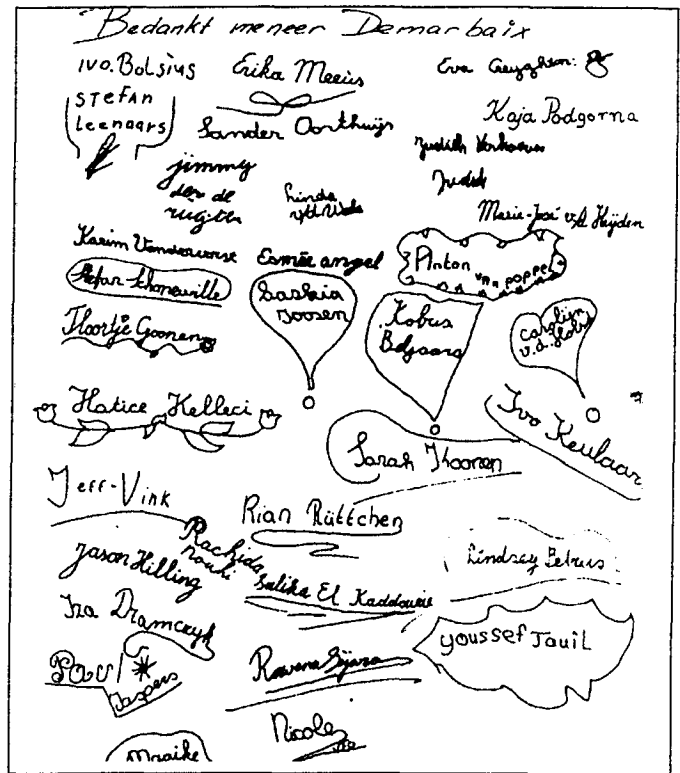 Bedankt meneer Demarbaix
Ivo. Bolsius
Erika Meeus
Eva
STEFAN
Leenaars
Sander Oorthuijs
Kaja Podgorna
Judith Verhoeven
Judith
jimmy
linda
Marie-José v.d. Heijden
Karim
Esmée angel
Anton
van poppel
Stefan Schoneville
Saskia
Joosen
Kobus
Beljaars
Carolijn
v.d.
Floortje Goonen
Hatice Kelleci
Ivo Keulaar
Sarah Koonen
Jeff-Vink
Rian Rüttchen
Rachida
nouhi
Jason Hilling
Lindsey Petrus
Salika El Kaddouri
Ira Dramczyk
youssef Jauil
Paul
Jaspers
Rowena
Nicole
Maaike